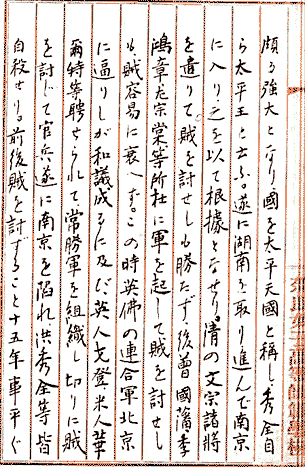 頗る強大となり國を太平天國と稱し秀全自
ら太平王と云ふ。遂に湖南を取り進んで南京
に入り之を以て根據となせり。清の文宗諸將
を遣りて、賊を討せしも勝たず、後曽國藩李
鴻章左宗棠等所在に軍を起して賊を討せし
も、賊容易に衰へず。この時英佛の連合軍北京
に逼りしが和議成るに及び英人戈登米人華
爾特等聘せられて常勝軍を組織し切りに賊
を討じて官兵遂に南京を陷れ洪秀全等皆
自殺せり。前後賊を討ずること十五年事平ぐ